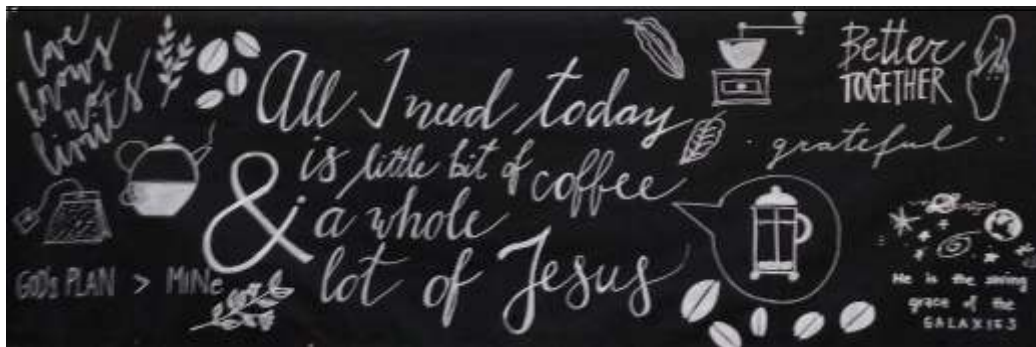 love
knows
no
limits
All I need today
is little bit of coffee
&
a whole
lot of Jesus
Better
TOGETHER
grateful
GOD's PLAN > MINe
He is the saving
grace of the
GALAXIES